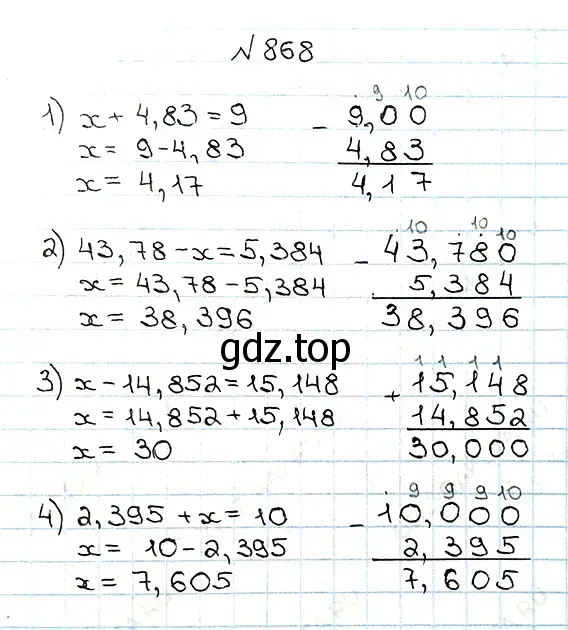 № 868
1) x + 4,83 = 9
x = 9 - 4,83
x = 4,17
9 10
- 9,00
4,83
4,17
2) 43,78 - x = 5,384
x = 43,78 - 5,384
x = 38,396
10 10 10
- 43,780
5,384
38,396
gdz.top
3) x - 14,852 = 15,148
x = 14,852 + 15,148
x = 30
1 1 1 1
+ 15,148
14,852
30,000
4) 2,395 + x = 10
x = 10 - 2,395
x = 7,605
9 9 9 10
- 10,000
2,395
7,605